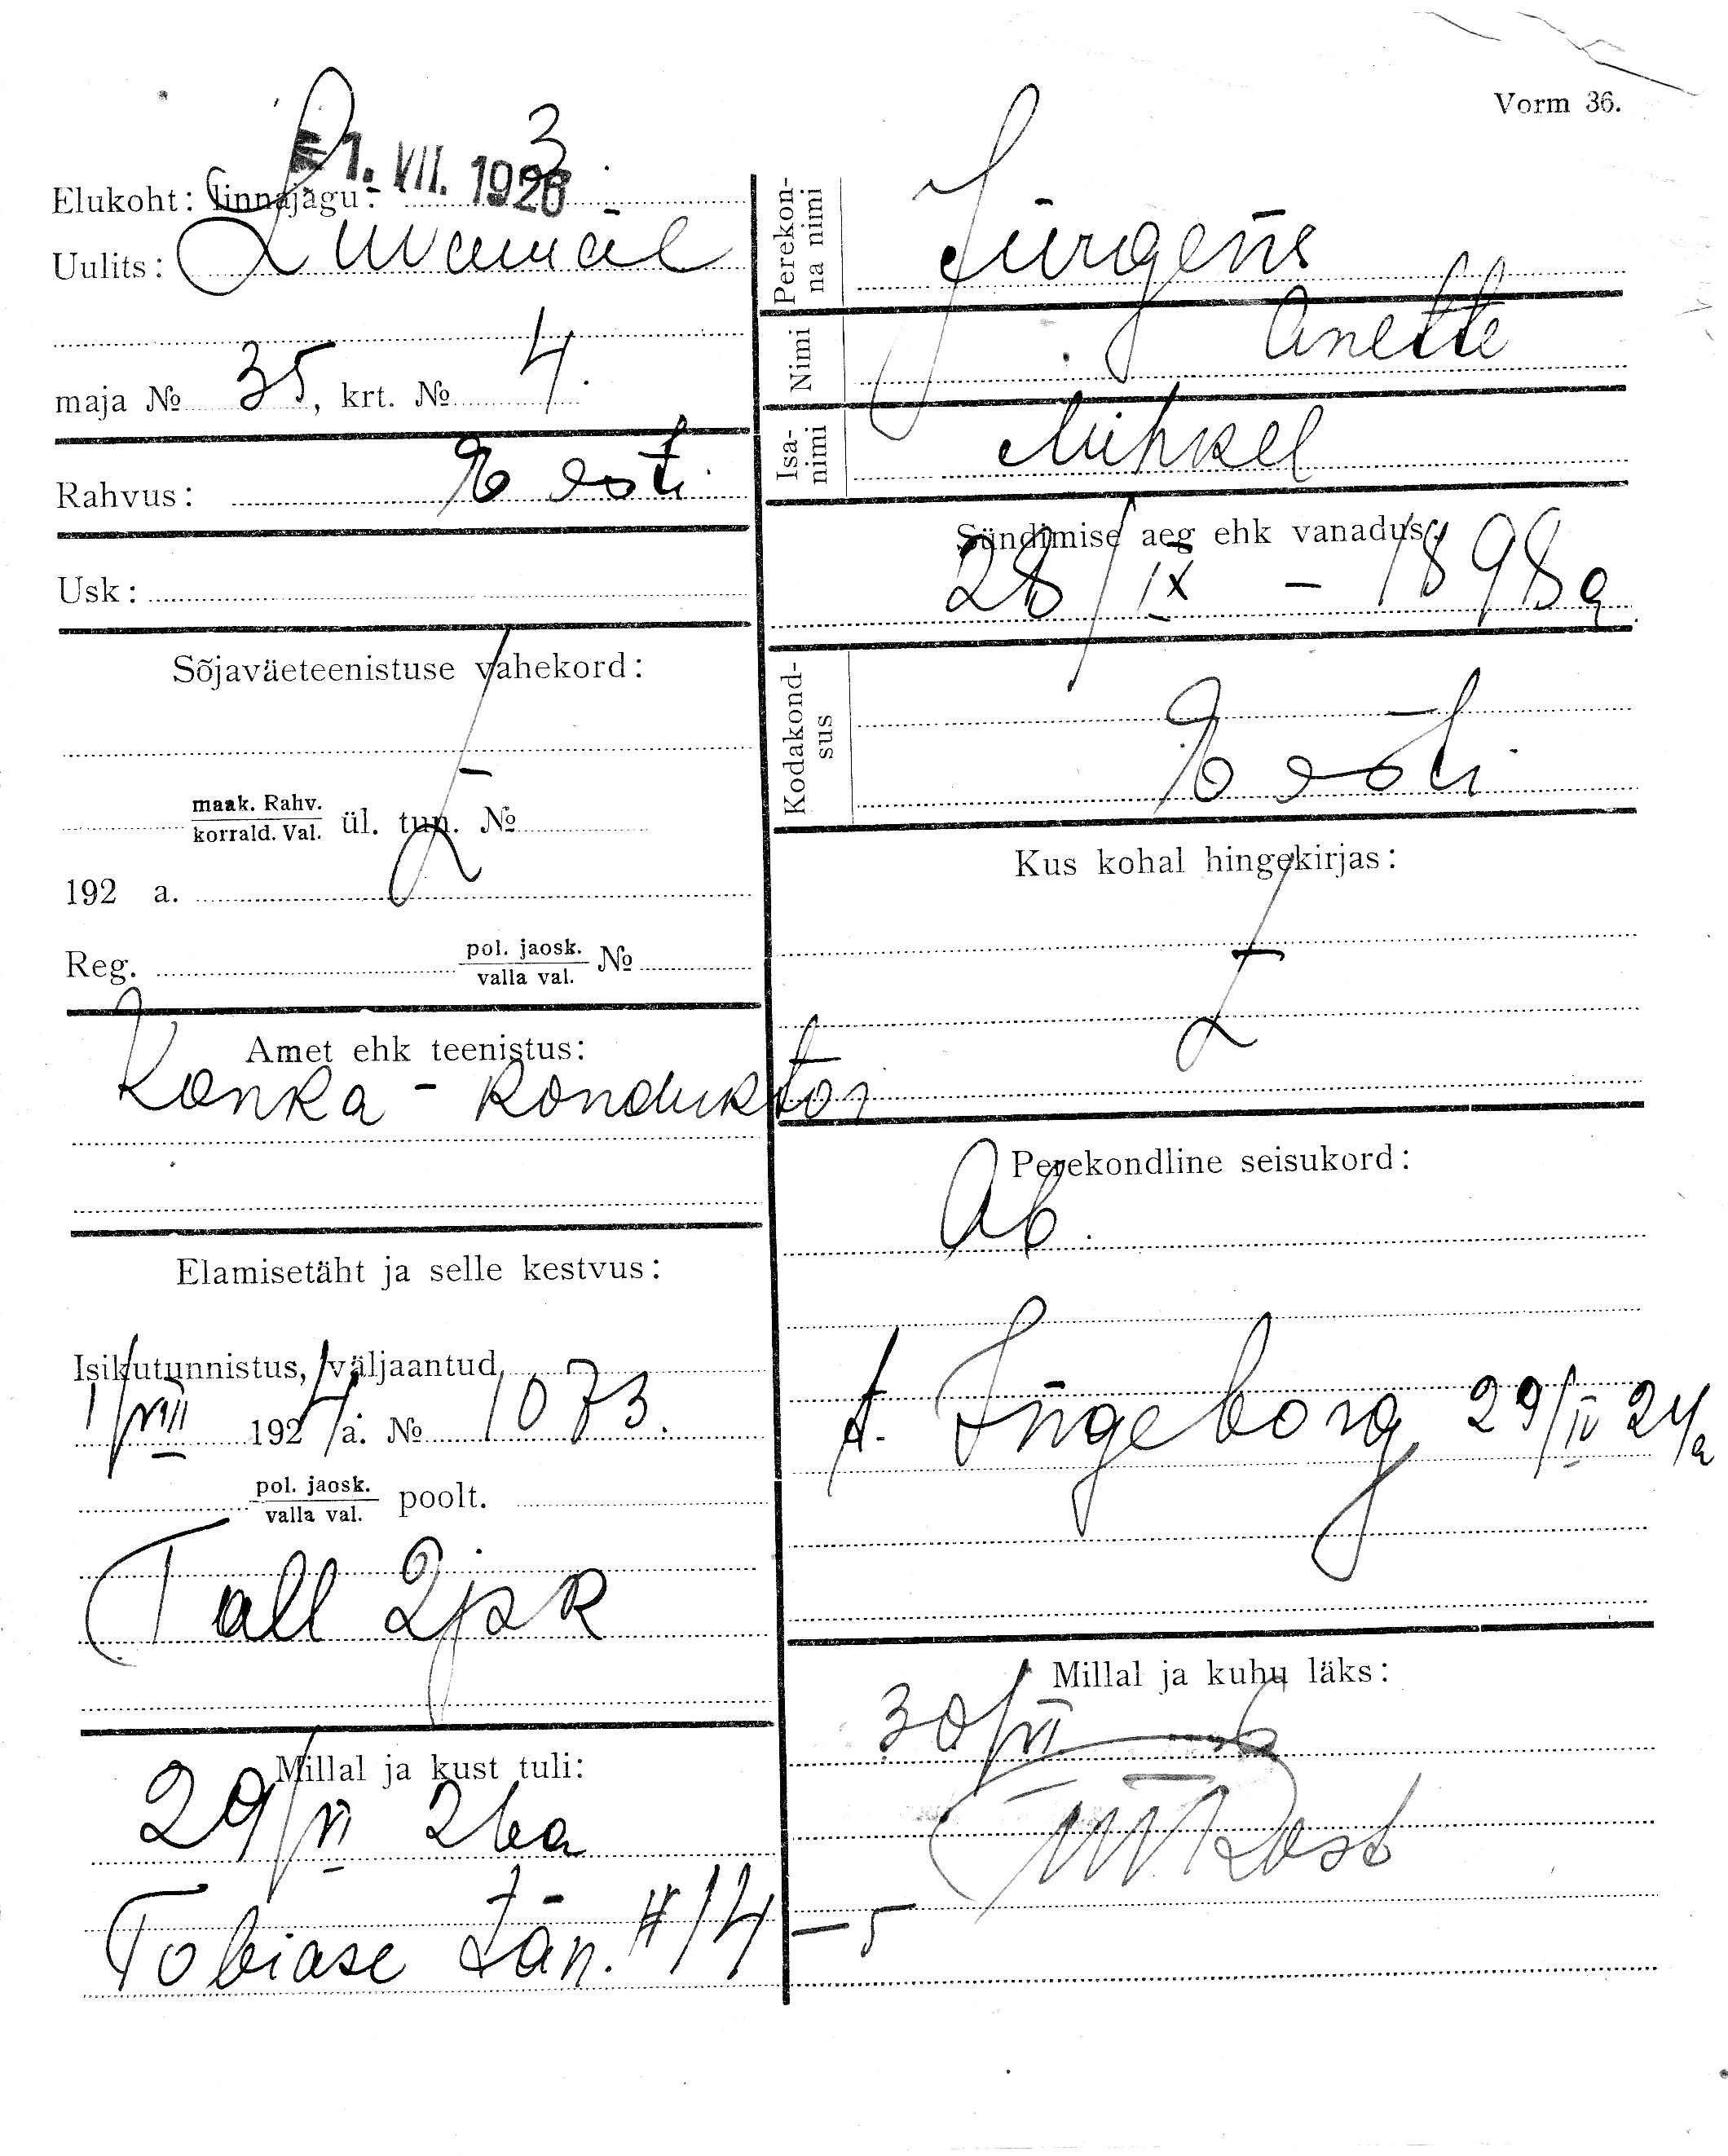 Vorm 36.
1. VII. 1926
3
Elukoht: linnajagu:
Uulits: Liivamäe
maja № 35, krt. № 4.
Rahvus: Eesti
Usk:
Sõjaväeteenistuse vahekord:
maak. Rahv.
korrald. Val. ül. tun. №
192 a.
Reg. pol. jaosk.
valla val. №
Amet ehk teenistus:
Konka-konduktor
Elamisetäht ja selle kestvus:
Isikutunnistus, väljaantud
1/VIII 1924 a. № 1073.
pol. jaosk.
valla val. poolt.
Tall 2jsk
Millal ja kust tuli:
29/VI 26a
Tobiase tän. # 14 – 5
Perekon-
na nimi
Jürgens
Nimi
Anette
Isa-
nimi
Mihkel
Sündimise aeg ehk vanadus:
28/IX – 1898a
Kodakond-
sus
Eesti
Kus kohal hingekirjas:
Perekondline seisukord:
Ab.
t. Ingeborg 29/IV 24/a
Millal ja kuhu läks:
30/VI